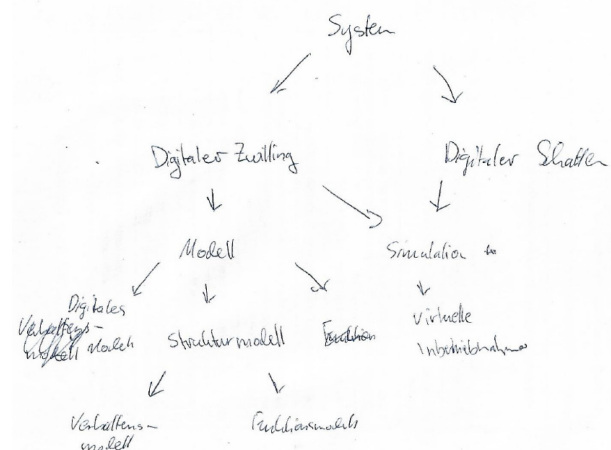 System
Digitaler Zwilling
Digitaler Schatten
Modell
Simulation
Digitales
Modell
Strukturmodell
Funktion
Virtuelle
Inbetriebnahme
Verhaltens-
modell
Funktionsmodell